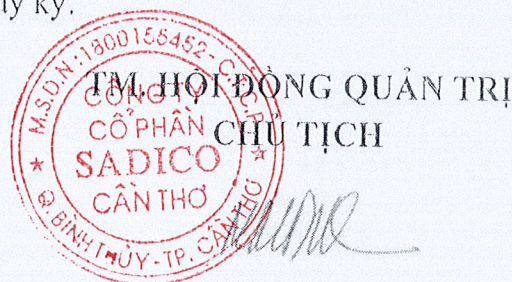 lý ký.
TM. HỘI ĐỒNG QUẢN TRỊ
CHỦ TỊCH
M.S.D.N:1800155452-C.T.C.P.
CÔNG TY
CỔ PHẦN
SADICO
CẦN THƠ
Q.BÌNH THỦY-TP. CẦN THƠ